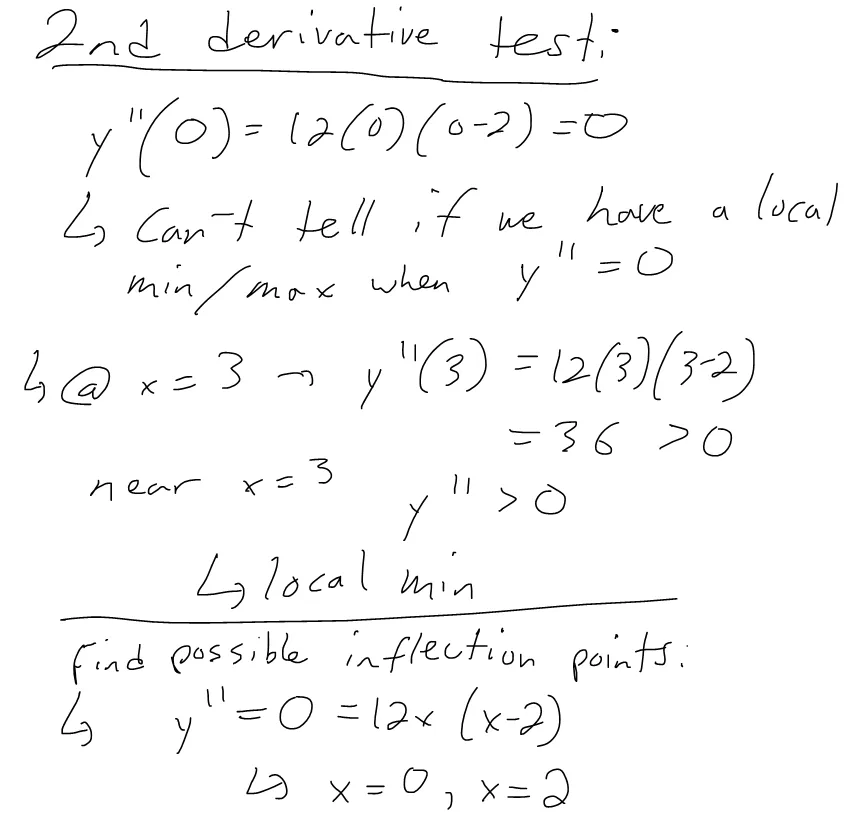 2nd derivative test:
y"(0) = 12(0)(0-2) = 0
↳ Can't tell if we have a local
min/max when y" = 0
↳ @ x = 3 → y"(3) = 12(3)(3-2)
= 36 > 0
near x = 3 y" > 0
↳ local min
Find possible inflection points:
↳ y" = 0 = 12x (x-2)
↳ x = 0, x = 2